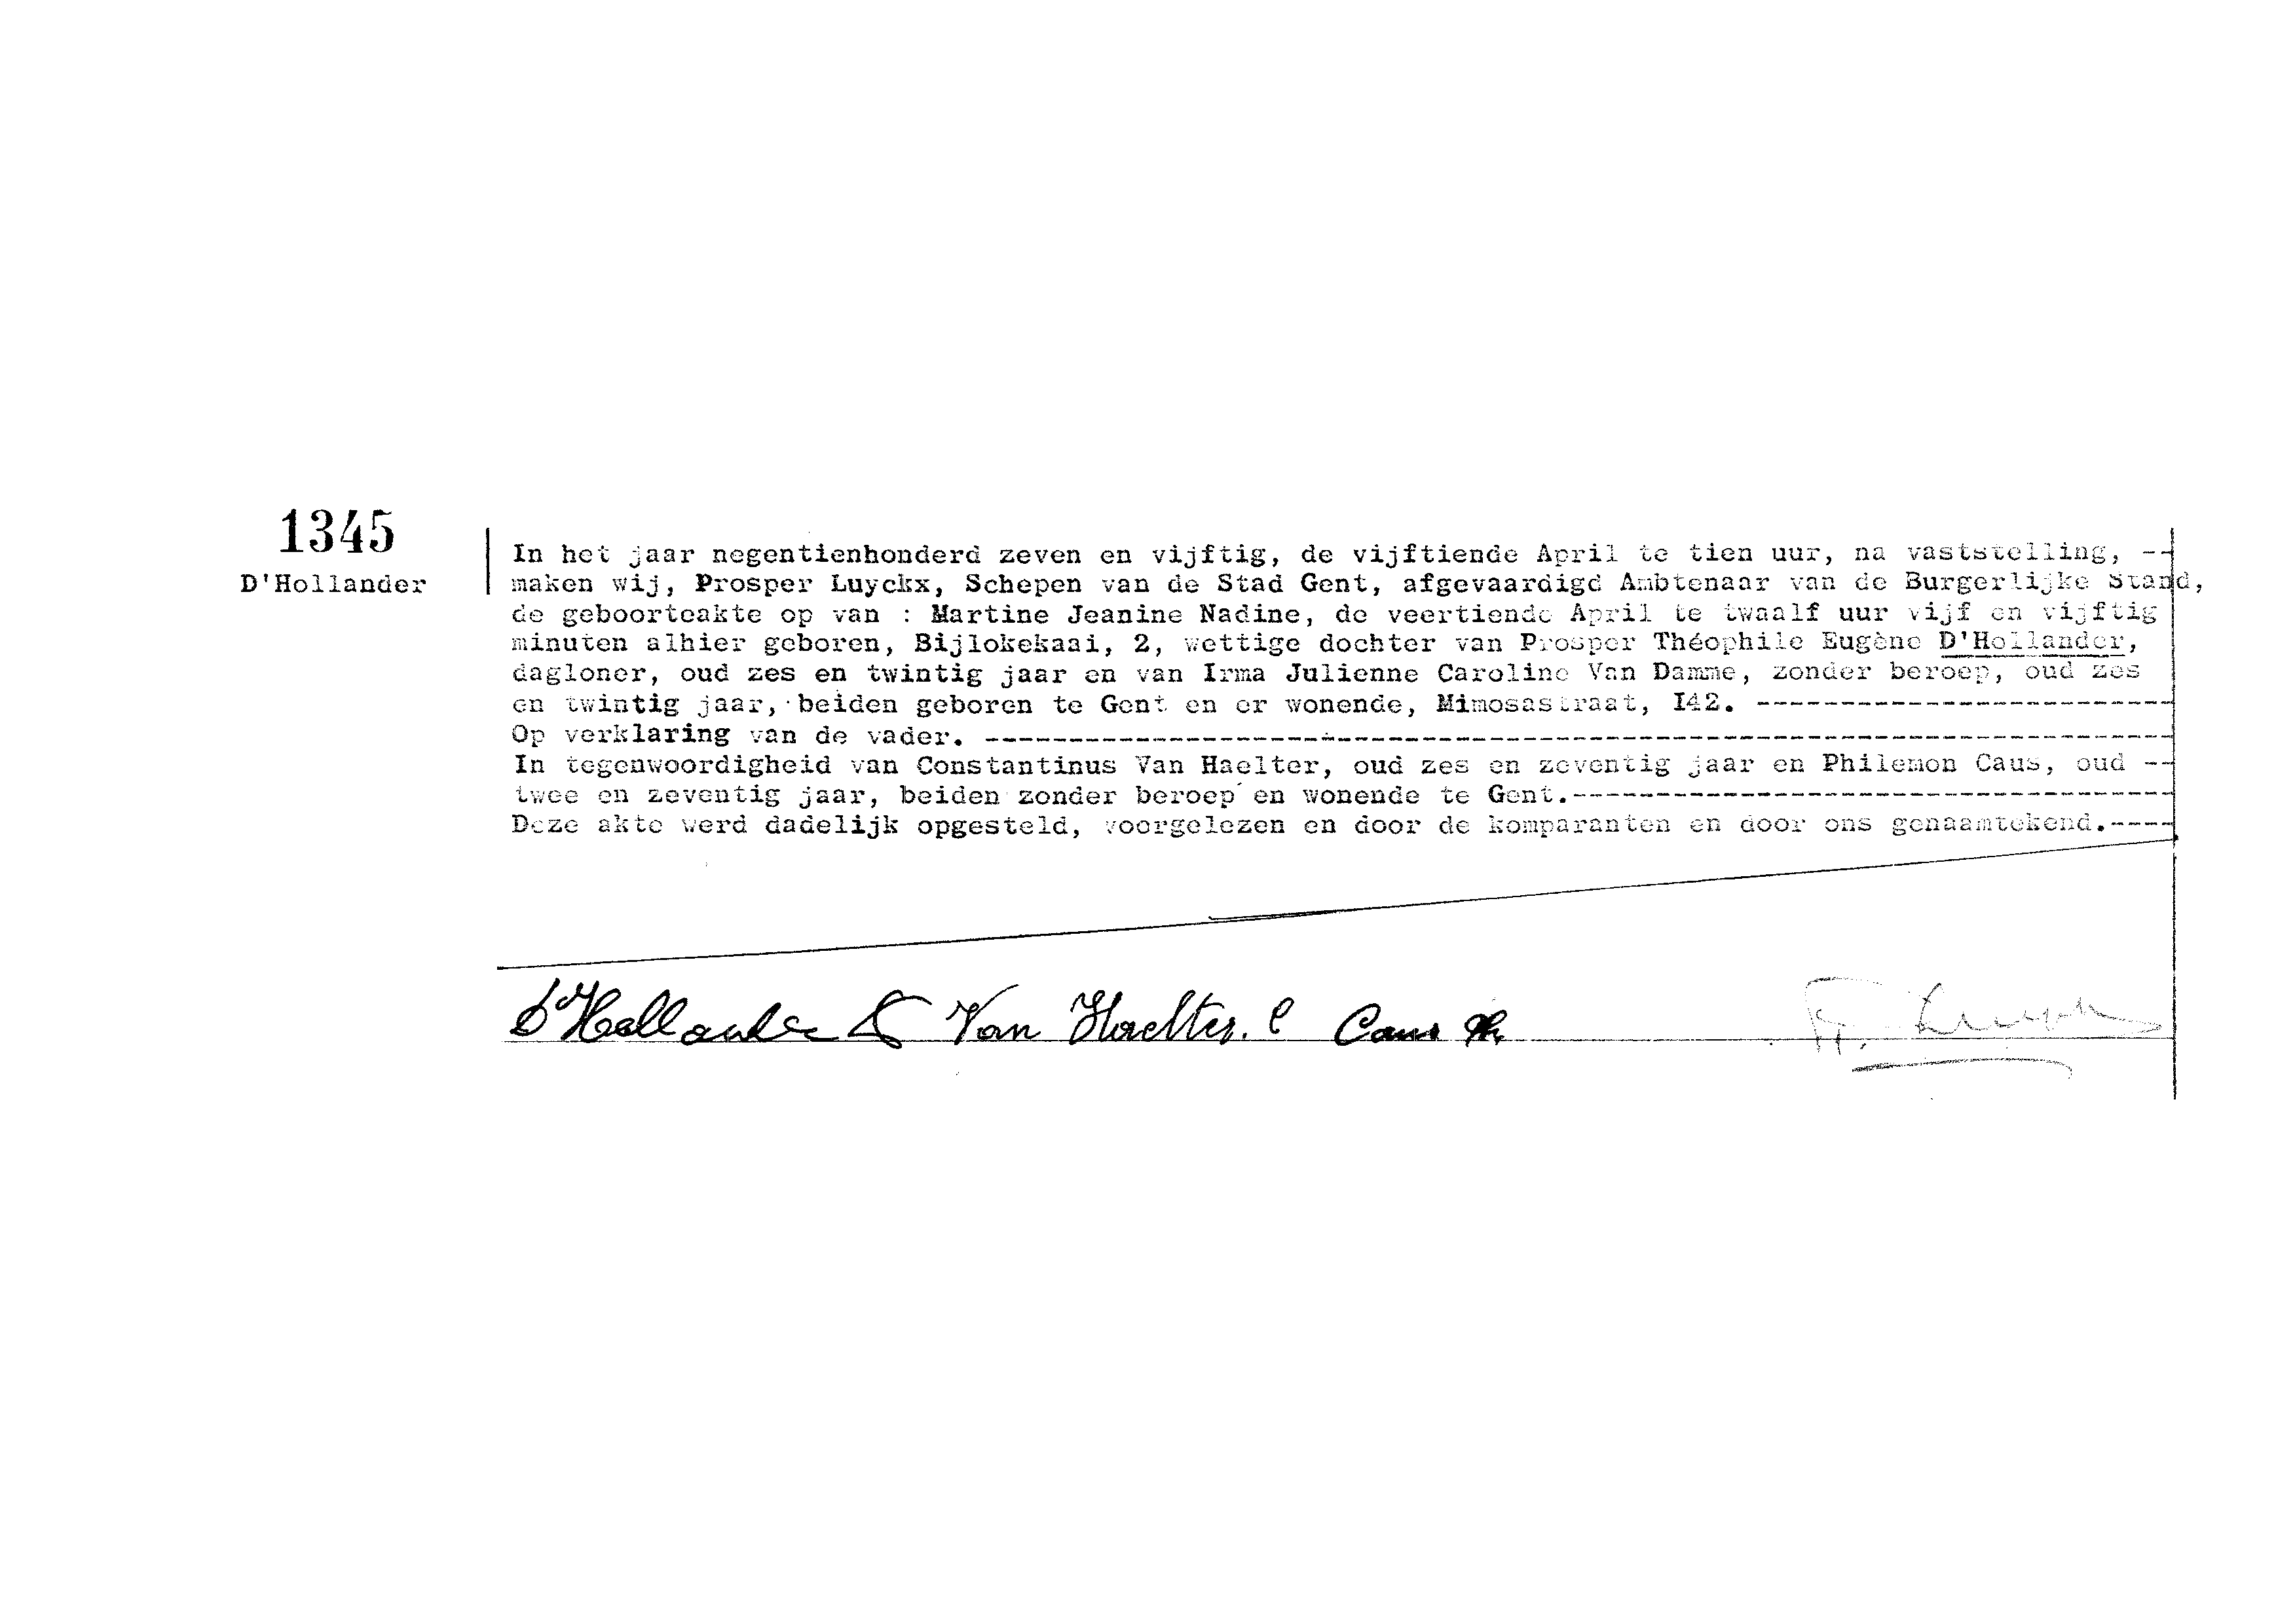 1345
D'Hollander
In het jaar negentienhonderd zeven en vijftig, de vijftiende April te tien uur, na vaststelling, --
maken wij, Prosper Luyckx, Schepen van de Stad Gent, afgevaardigd Ambtenaar van de Burgerlijke Stand,
de geboorteakte op van : Martine Jeanine Nadine, de veertiende April te twaalf uur vijf en vijftig
minuten alhier geboren, Bijlokekaai, 2, wettige dochter van Prosper Théophile Eugène D'Hollander,
dagloner, oud zes en twintig jaar en van Irma Julienne Caroline Van Damme, zonder beroep, oud zes
en twintig jaar, beiden geboren te Gent en er wonende, Mimosastraat, I42. -------------------------
Op verklaring van de vader. -----------------------------------------------------------------------
In tegenwoordigheid van Constantinus Van Haelter, oud zes en zeventig jaar en Philemon Caus, oud --
twee en zeventig jaar, beiden zonder beroep en wonende te Gent.------------------------------------
Deze akte werd dadelijk opgesteld, voorgelezen en door de komparanten en door ons genaamtekend.----
D'Hollander Van Haelter. C Caus Ph.